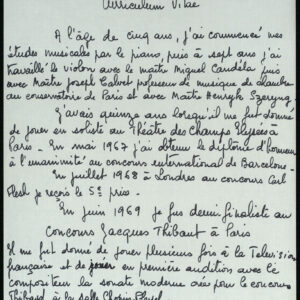 Curriculum Vitae
A l'âge de cinq ans, j'ai commencé mes
études musicales par le piano, puis à sept ans j'ai
travaillé le violon avec le maître Miguel Candéla puis
avec Maître Joseph Calvet professeur de musique de chambre
au conservatoire de Paris et avec Maître Henryk Szeryng
J'avais quinze ans lorsqu'il me fut donné
de jouer en soliste au Théâtre des Champs Elysées à
Paris - En mai 1967 j'ai obtenu le diplôme d'honneur
à l'unanimité au concours international de Barcelone -
En juillet 1968 à Londres au concours Carl
Flesh je reçois le 5e prix -
En juin 1969 je fus demi-finaliste au
concours Jacques Thibaut à Paris
Il me fut donné de jouer plusieurs fois à la Télévision
française et de jouer en première audition avec le
compositeur la sonate moderne crée pour le concours
Thibaud à la salle Chopin Pleyel